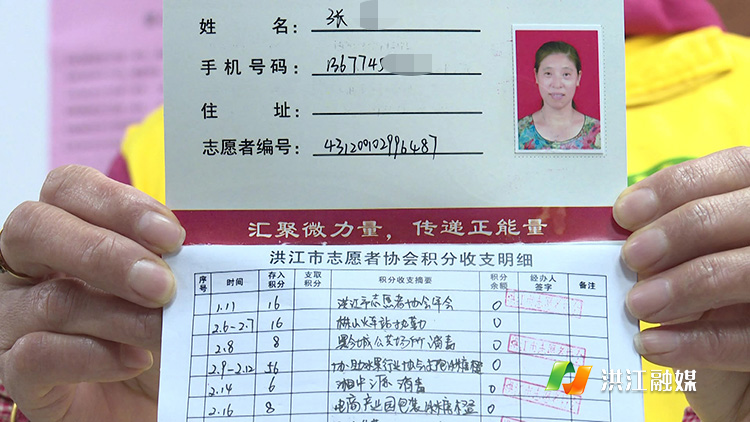 姓 名：张
手机号码：1367745
住 址：
志愿者编号：431200102996487
汇聚微力量，传递正能量
洪江市志愿者协会积分收支明细
序号 时间 存入积分 支取积分 积分收支摘要 积分余额 经办人签字 备注
1.11 16 洪江市志愿者协会年会 0
2.6-2.7 16 火车站协勤 0
2.8 8 黔城公共场所消毒 0
2.9-2.12 56 协助水果行业协会 冰糖橙 0
2.14 6 湘中源消毒 0
2.16 8 电商产业园包装冰糖橙 0
洪江融媒